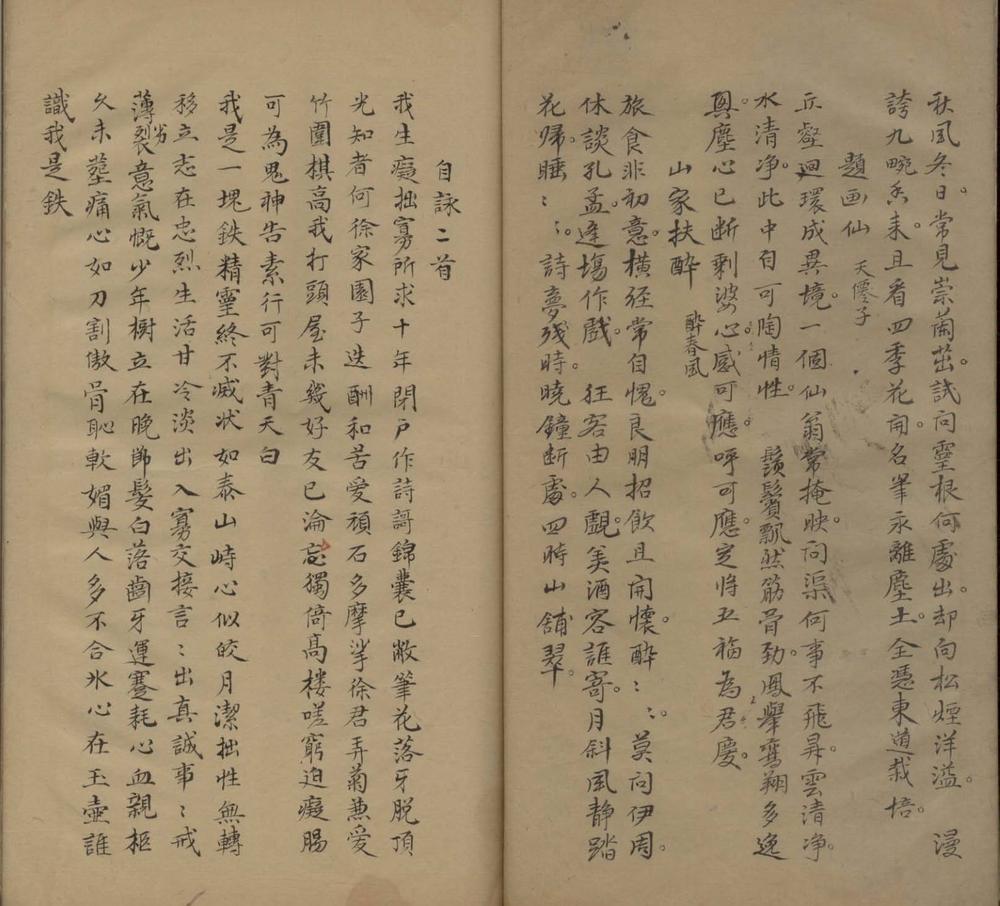 秋風冬日。常見崇蘭茁。試问靈根何處出。却向松烟洋溢。　漫
誇九畹香来。且看四季花開。名筆永離塵土。全憑東道栽培。
題画仙　天僊子
丘壑迴環成異境。一個仙翁常掩映。问渠何事不飛昇。雲清净。
水清净。此中自可陶情性。　鬚鬢飄然筋骨劲。鳳舉鸞翔多逸
興。塵心已断剩婆心。感可應。呼可應。定将五福為君慶。
山家扶醉　醉春風
旅食非初意。横经常自愧。良朋招飲且開懷。醉〻〻。莫问伊周。
休談孔孟。逢塲作戲。　狂客由人覷。美酒容誰寄。月斜風静踏
花帰。睡〻〻。詩夢残時。曉鐘断處。四時山舖翠。
自詠二首
我生癡拙寡所求十年閉户作詩謌錦囊已敝筆花落牙脱頂
光知者何徐家園子迭酬和苦愛頑石多摩挲徐君弄菊兼爱
竹圍棋高我打頭屋未幾好友已淪忘獨倚高楼嗟窮迫癡腸
可為鬼神告素行可對青天白
我是一塊鉄精靈終不滅状如泰山峙心似皎月潔拙性無轉
移立志在忠烈生活甘冷淡出入寡交接言〻出真誠事〻戒
薄劣裂意氣慨少年樹立在晚節髮白落齒牙運蹇耗心血親柩
久未塟痛心如刀割傲骨恥軟媚與人多不合氷心在玉壷誰
識我是鉄